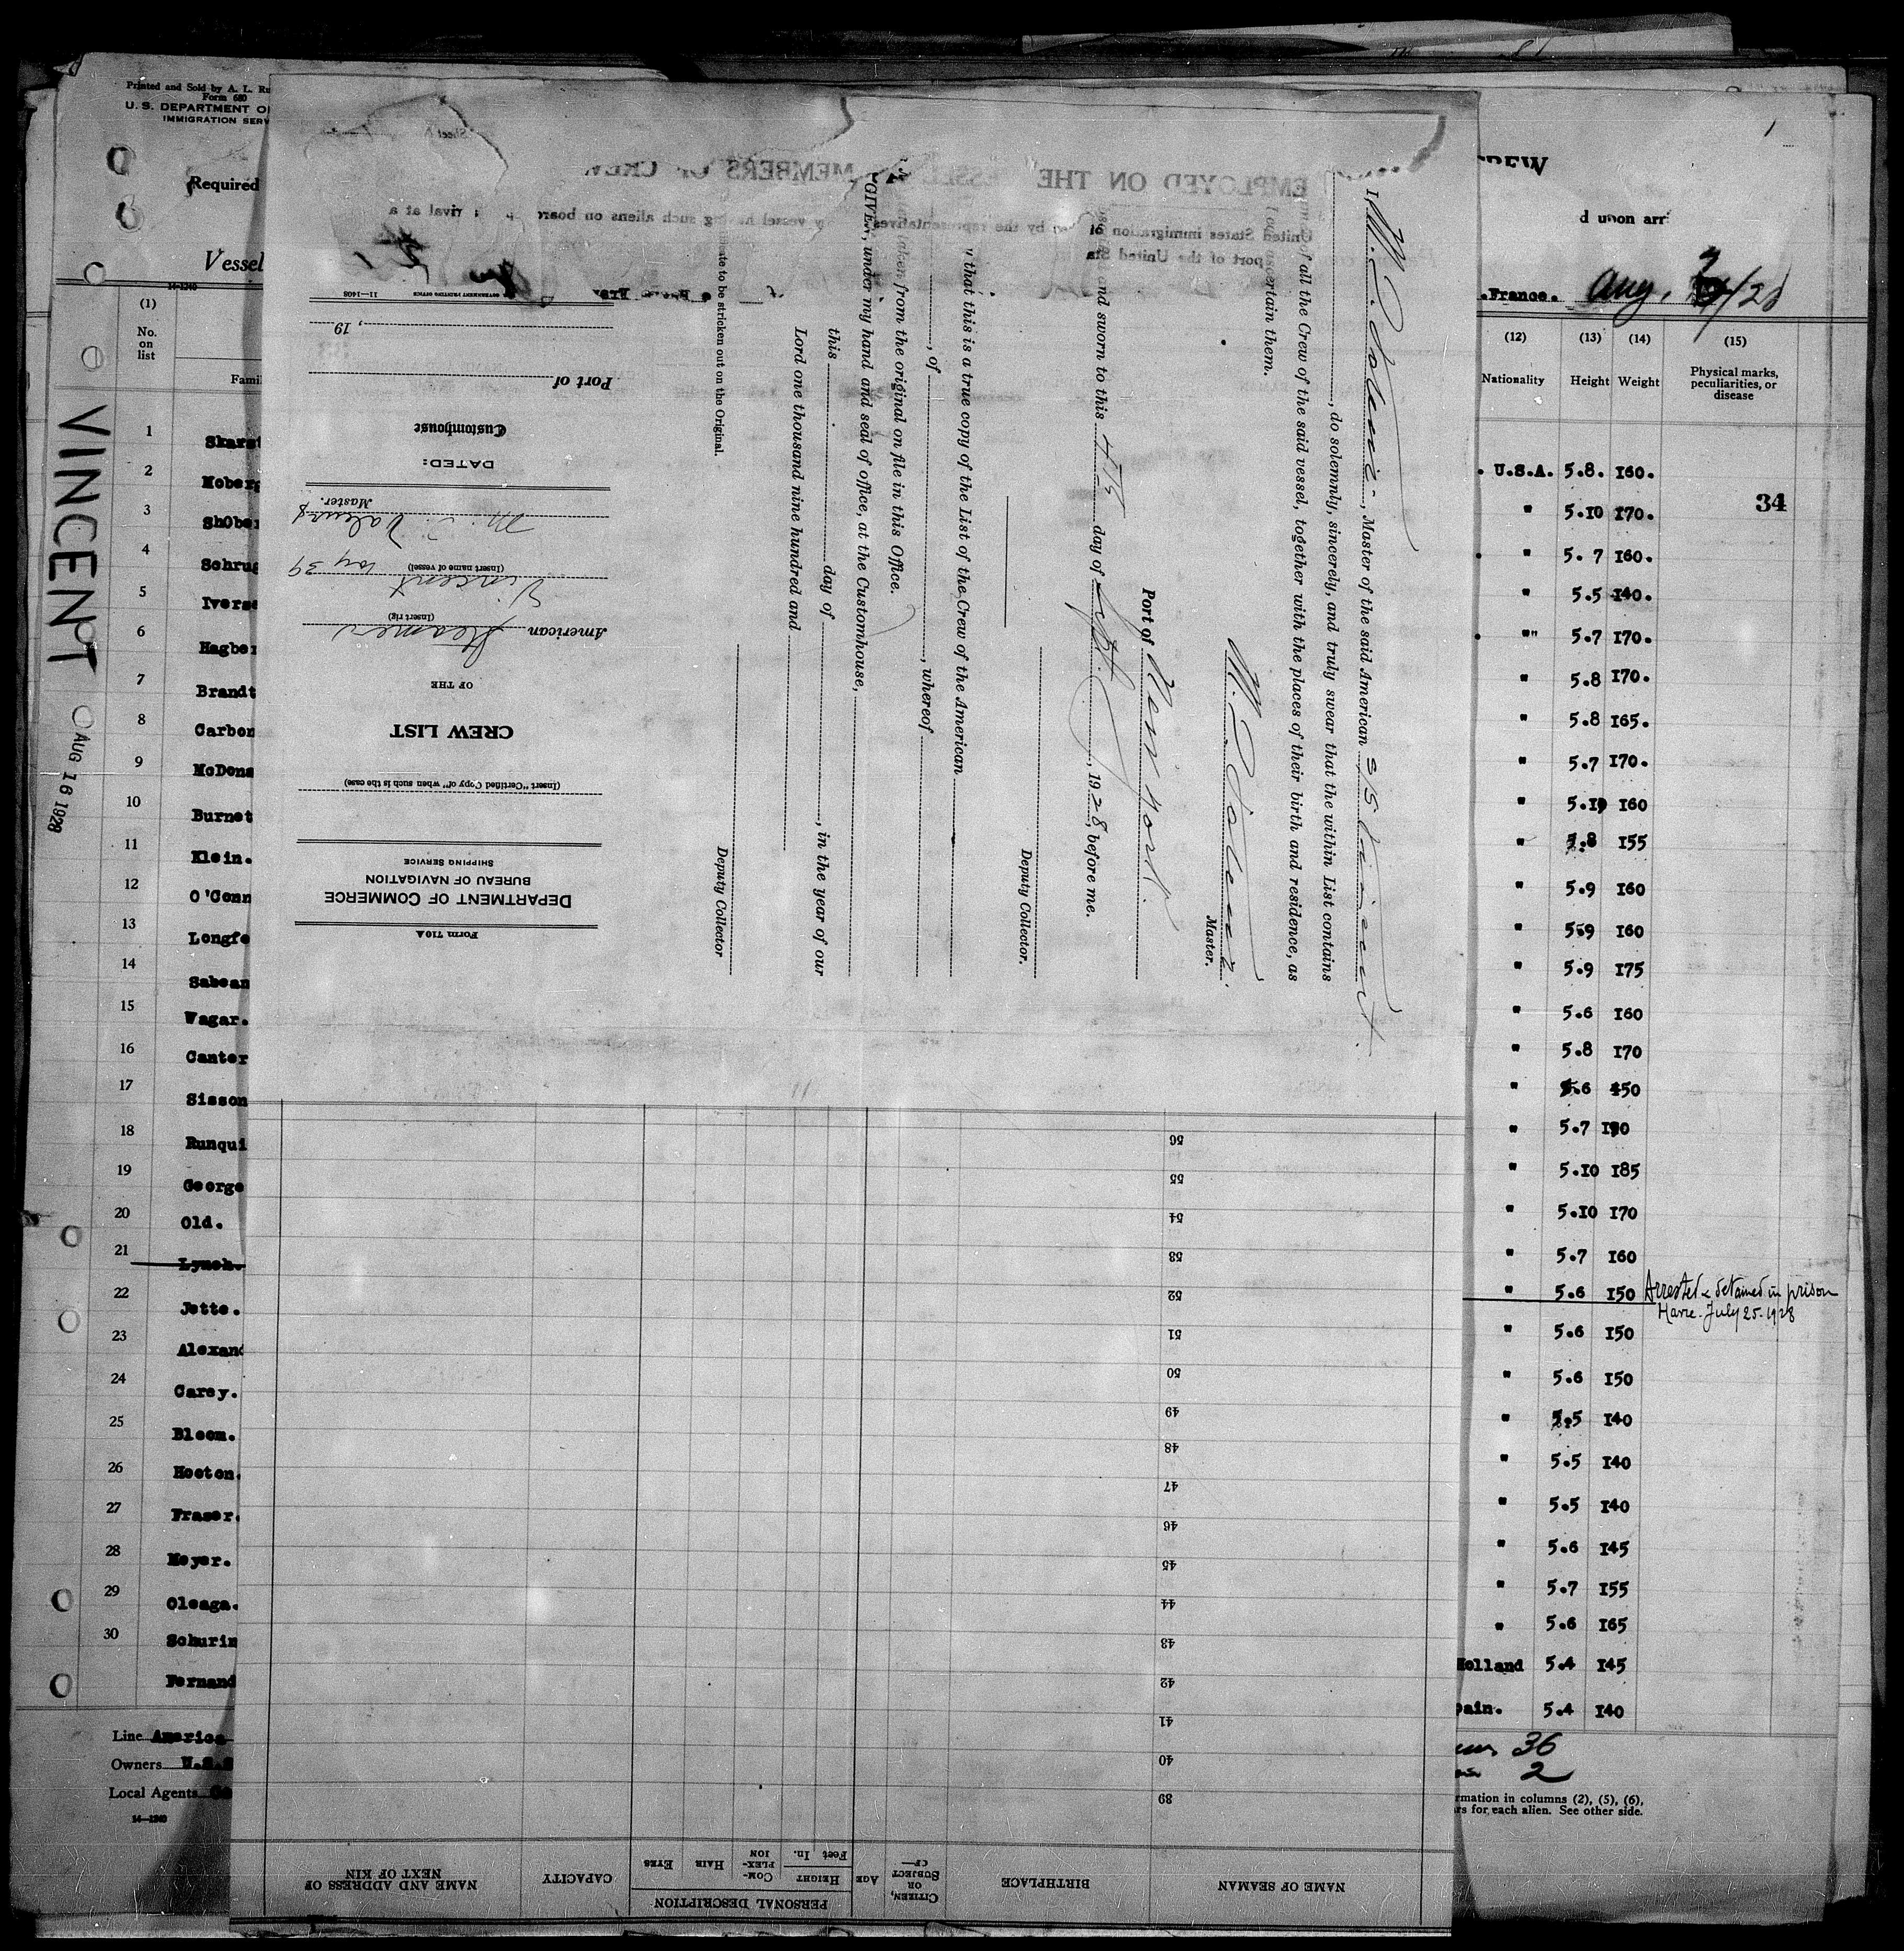 Printed and Sold by A. L.
Form 680
U. S. DEPARTMENT
IMMIGRATION SERV
Required
Vessel
14—1240
(1)
No.
on
list
Fami
VINCENT
AUG 16 1928
1
2
3
4
5
6
7
8
9
10
11
12
13
14
15
16
17
18
19
20
21
22
23
24
25
26
27
28
29
30
Skarst
Moberg
Shober
Schrug
Iverse
Hagber
Brandt
Carbon
McDona
Burnet
Klein.
O'Conn
Longfe
Sabean
Wagar.
Canter
Sisson
Runqui
George
Old.
Lynch.
Jette.
Alexand
Carey.
Bloom.
Hooton.
Fraser.
Meyer.
Oleaga.
Schurin
Fernand
Line America
Owners U.S.S
Local Agents
14—1240
EMPLOYED ON THE VESSEL MEMBERS OF CREW
United States immigration by the representatives vessel having such aliens on board rival at a
port of the United Sta
I, , Master of the said American S/S Vincent
, do solemnly, sincerely, and truly swear that the within List contains
of all the Crew of the said vessel, together with the places of their birth and residence, as
ascertain them.
Master.
Port of New York
and sworn to this 4th day of Sept., 1928, before me.
Deputy Collector.
that this is a true copy of the List of the Crew of the American
, of , whereof
taken from the original on file in this Office.
GIVEN, under my hand and seal of office, at the Customhouse,
this day of , in the year of our
Lord one thousand nine hundred and
Deputy Collector
to be stricken out on the Original.
Form 710A
DEPARTMENT OF COMMERCE
BUREAU OF NAVIGATION
SHIPPING SERVICE
(Insert "Certified Copy of" when such is the case)
CREW LIST
OF THE
American Steamer
(Insert rig)
Vincent voy 39
(Insert name of vessel)
Master.
DATED:
Customhouse
Port of
, 19
11—1408 GOVERNMENT PRINTING OFFICE
NAME OF SEAMAN
BIRTHPLACE
CITIZEN, OR SUBJECT OF—
AGE
PERSONAL DESCRIPTION
HEIGHT
Feet In.
COM-PLEX-ION
HAIR
EYES
CAPACITY
NAME AND ADDRESS OF NEXT OF KIN
39
40
41
42
43
44
45
46
47
48
49
50
51
52
53
54
55
56
CREW
d upon arr
France. Aug.
(12) (13) (14) (15)
Nationality Height Weight Physical marks, peculiarities, or disease
34
U.S.A. 5.8. 160.
" 5.10 170.
" 5.7 160.
" 5.5 140.
" 5.7 170.
" 5.8 170.
" 5.8 165.
" 5.7 170.
" 5.10 160
" 5.8 155
" 5.9 160
" 5.9 160
" 5.9 175
" 5.6 160
" 5.8 170
" 5.6 150
" 5.7
" 5.10 185
" 5.10 170
" 5.7 160
" 5.6 150 Arrested & detained in prison
Havre. July 25. 1928
" 5.6 150
" 5.6 150
" 5.5 140
" 5.5 140
" 5.5 140
" 5.6 145
" 5.7 155
" 5.6 165
Holland 5.4 145
pain. 5.4 140
36
2
rmation in columns (2), (5), (6),
rs for each alien. See other side.